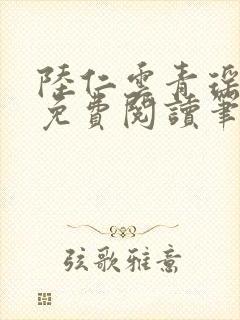 陸仁雲青瑤
免費閱讀筆
弦歌雅意